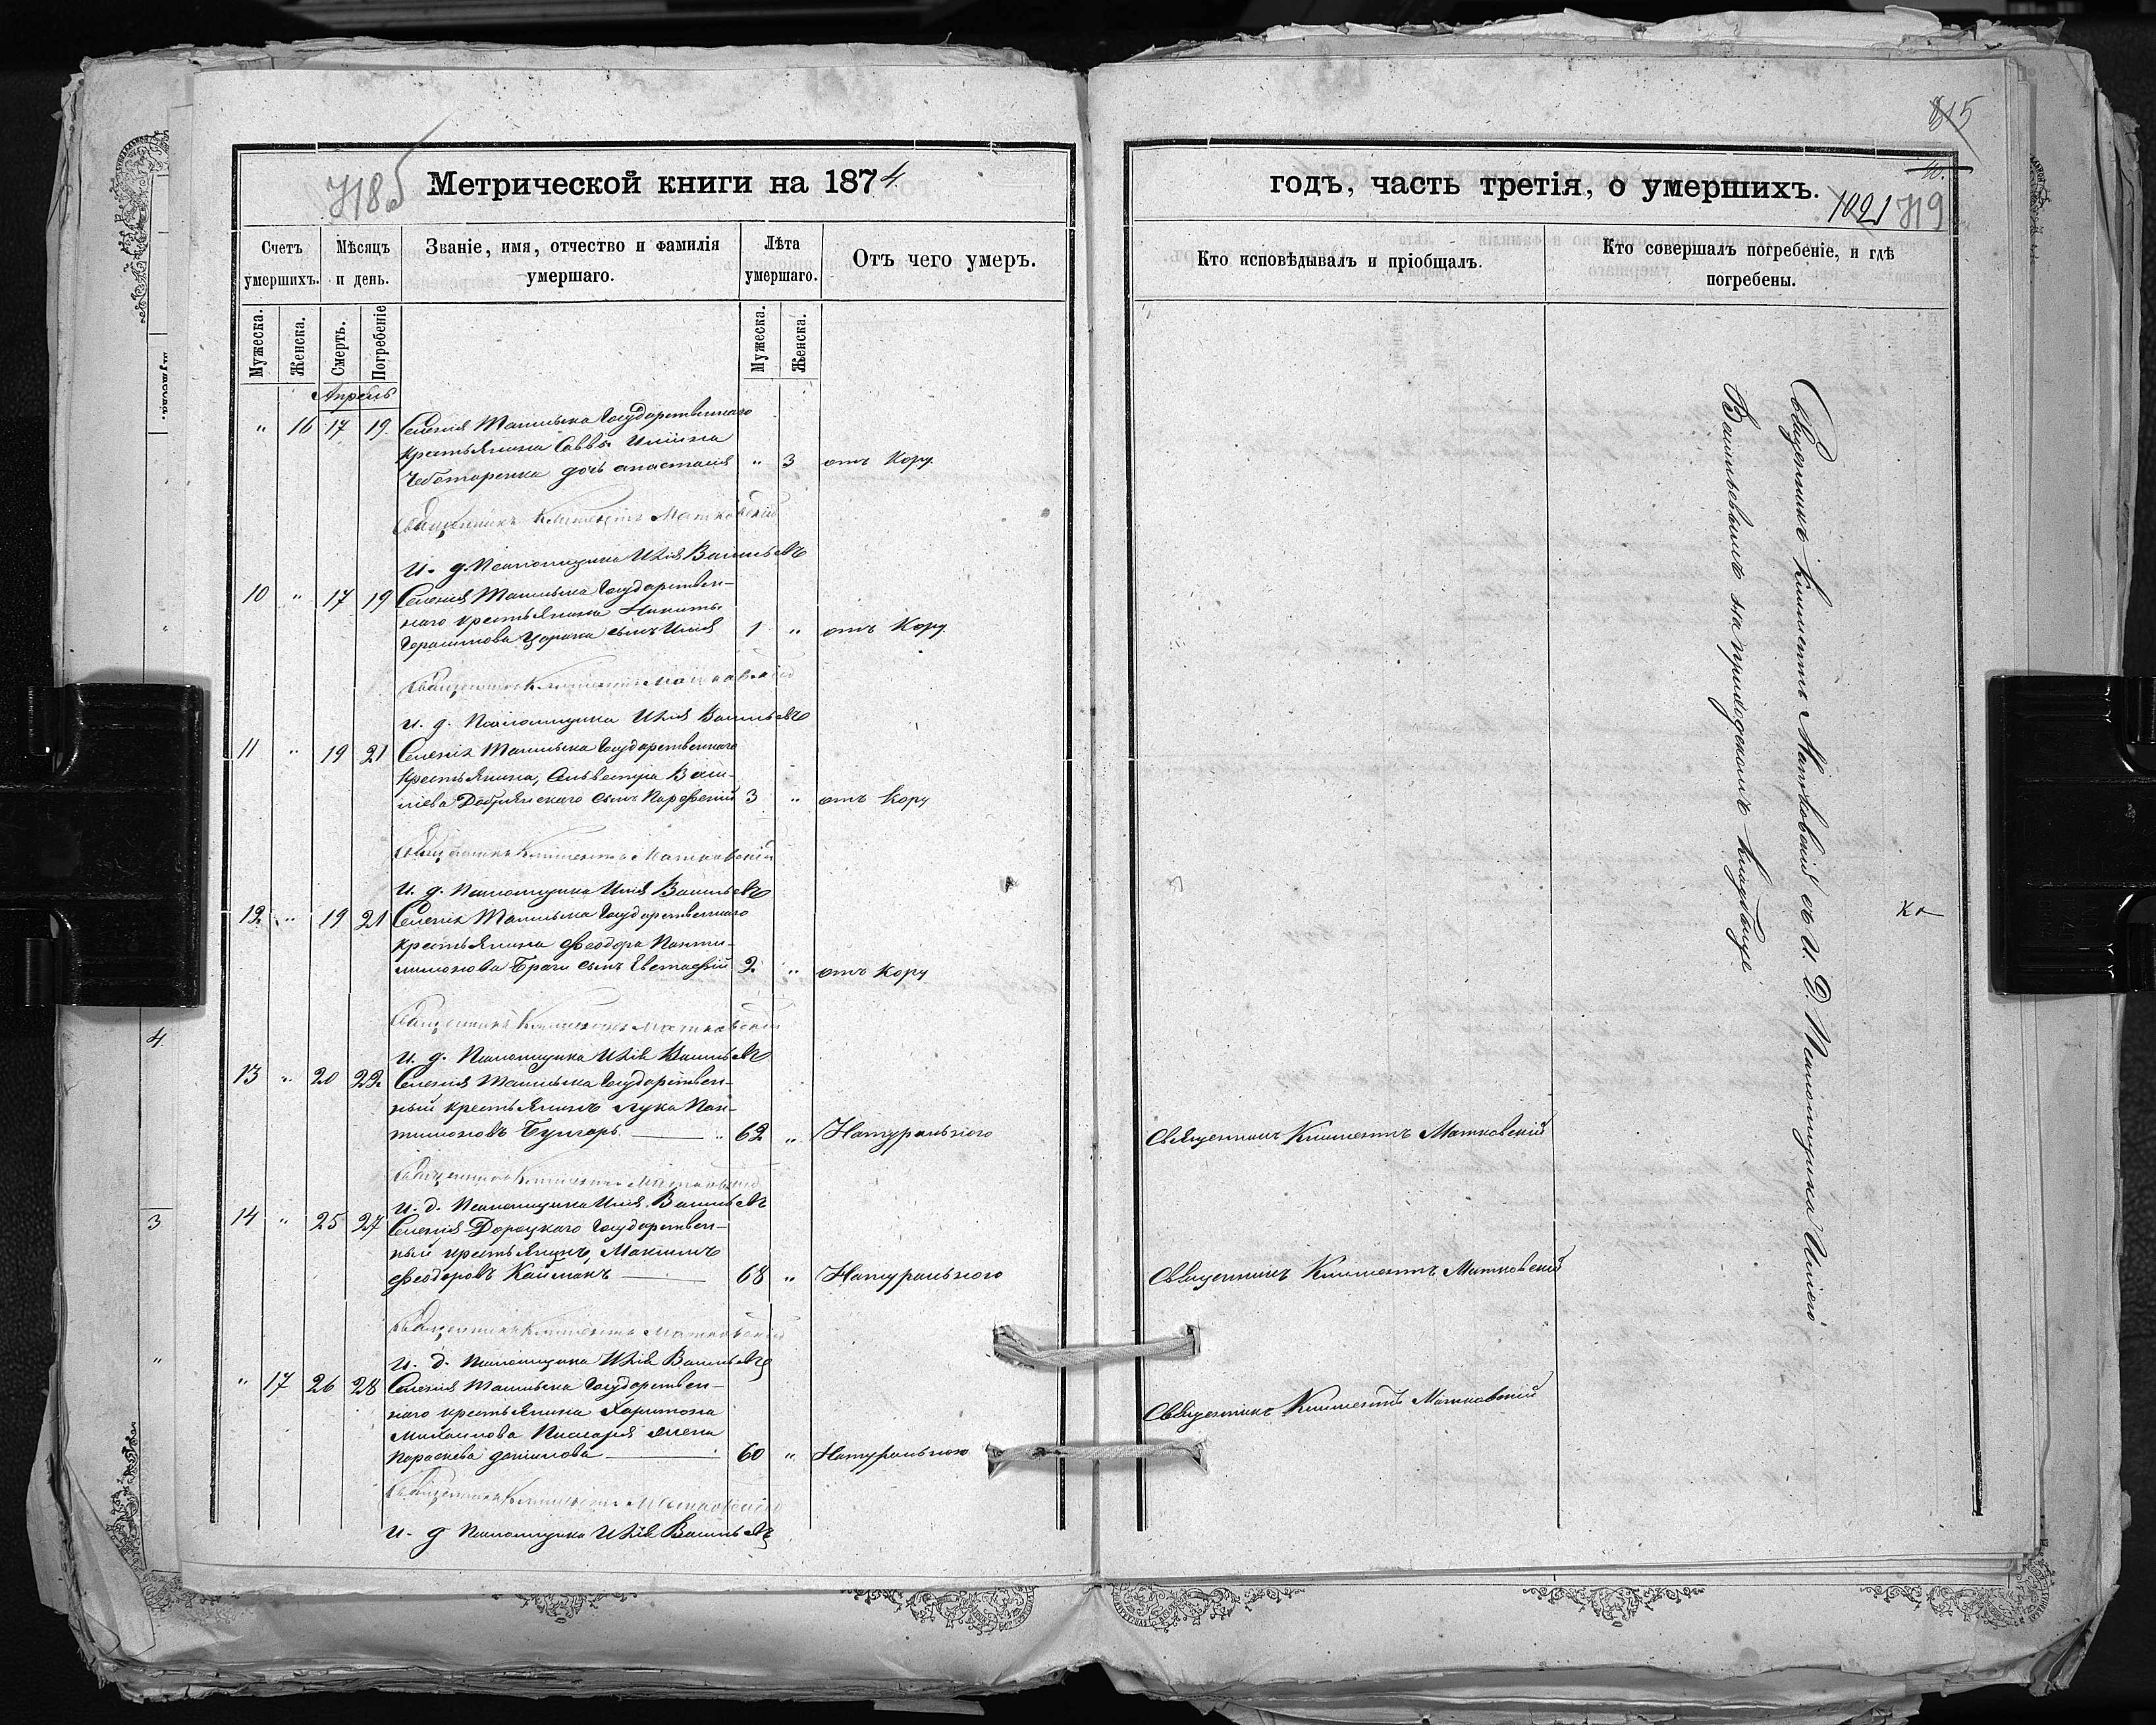 718б
Метрической книги на 1874.
Счетъ
умершихъ.
Мѣсяцъ
и день.
Званіе, имя, отчество и фамилія
умершаго.
Лѣта
умершаго.
Отъ чего умеръ.
Мужеска.
Женска.
Смерть.
Погребеніе
Мужеска.
Женска.
Апрель
" 16 17 19 Селенія Ташлыка Государственнаго
крестьянина Саввы Иліина
Чеботаренка дочь Анастасія " 3 отъ Кору
Священникъ Климентъ Матковскій
И. д. Псаломщика Илія Васильевъ
10 " 17 19 Селенія Ташлыка Государствен-
наго крестьянина Никиты
Герасимова сынъ Илія 1 " отъ Кору
Священникъ Климентъ Матковскій
И. д. Псаломщика Илія Васильевъ
11 " 19 21 Селенія Ташлыка Государственнаго
крестьянина, Сильвестра Васи-
ліева сынъ Парфеній 3 " отъ Кору
Священникъ Климентъ Матковскій
И. д. Псаломщика Илія Васильевъ
12 " 19 21 Селенія Ташлыка Государственнаго
крестьянина Феодора Панти-
лимонова сынъ Евстафій 2 " отъ Кору
Священникъ Климентъ Матковскій
И. д. Псаломщика Илія Васильевъ
13 " 20 22 Селенія Ташлыка Государствен-
ный крестьянинъ Лука Пан-
тилимоновъ Бунгаръ 62 " Натуральною
Священникъ Климентъ Матковскій
И. д. Псаломщика Илія Васильевъ
14 " 25 27 Селенія Дороцкаго Государствен-
ный крестьянинъ Максимъ
Феодоровъ Кайманъ 68 " Натуральною
Священникъ Климентъ Матковскій
И. д. Псаломщика Илія Васильевъ
" 17 26 28 Селенія Ташлыка Государствен-
наго крестьянина Харитона
Михаилова жена
Параскева Данилова 60 " Натуральною
Священникъ Климентъ Матковскій
И. д. Псаломщика Илія Васильевъ
4.
3
"
815
годъ, часть третія, о умершихъ.
1021 719
Кто исповѣдывалъ и пріобщалъ.
Кто совершалъ погребеніе, и гдѣ
погребены.
Священникъ Климентъ Матковскій
Священникъ Климентъ Матковскій
Священникъ Климентъ Матковскій
Священникъ Климентъ Матковскій съ И. Д. Псаломщика Иліею
Васильевымъ на приходскомъ кладбище